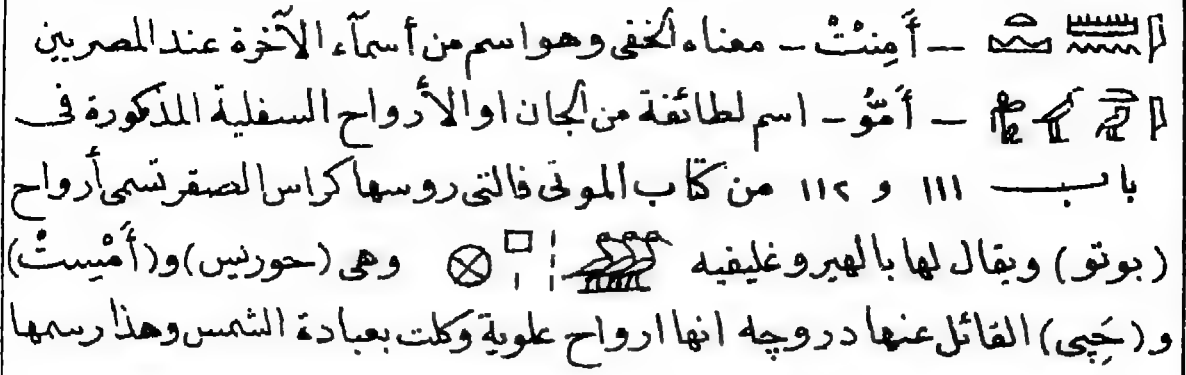 𓇋𓏠𓈖𓏏𓈉 – أَمِنتْ – معناه الخفى وهو اسم من أسمآء الآخرة عند المصريين
– أَمّوُ – اسم لطائفة من الجان او الأرواح السفلية المذكورة فى
باب ١١١ و ١١٢ من كتاب الموتى فالتى روسها كراس الصقر تسمى أرواح
(بوتو) ويقال لها بالهيروغليفيه وهى (حورنيس) و (أَمْيِستْ)
و (حَپى) القائل عنها دروچه انها ارواح علوية وكلت بعبادة الشمس وهذا رسمها